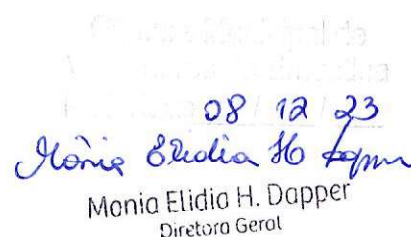 08 12 23
Mônia Elidia H Dapper
Monia Elidia H. Dapper
Diretora Geral